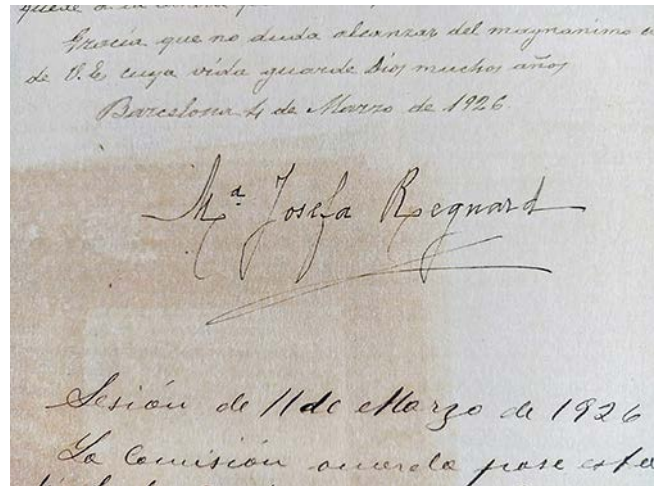 quede
Gracia que no duda alcanzar del magnanimo
de V.E. cuya vida guarde Dios muchos años
Barcelona 4 de Marzo de 1926.
Mª Josefa Regnard
Sesión de 11 de Marzo de 1926
La Comisión acuerda pase